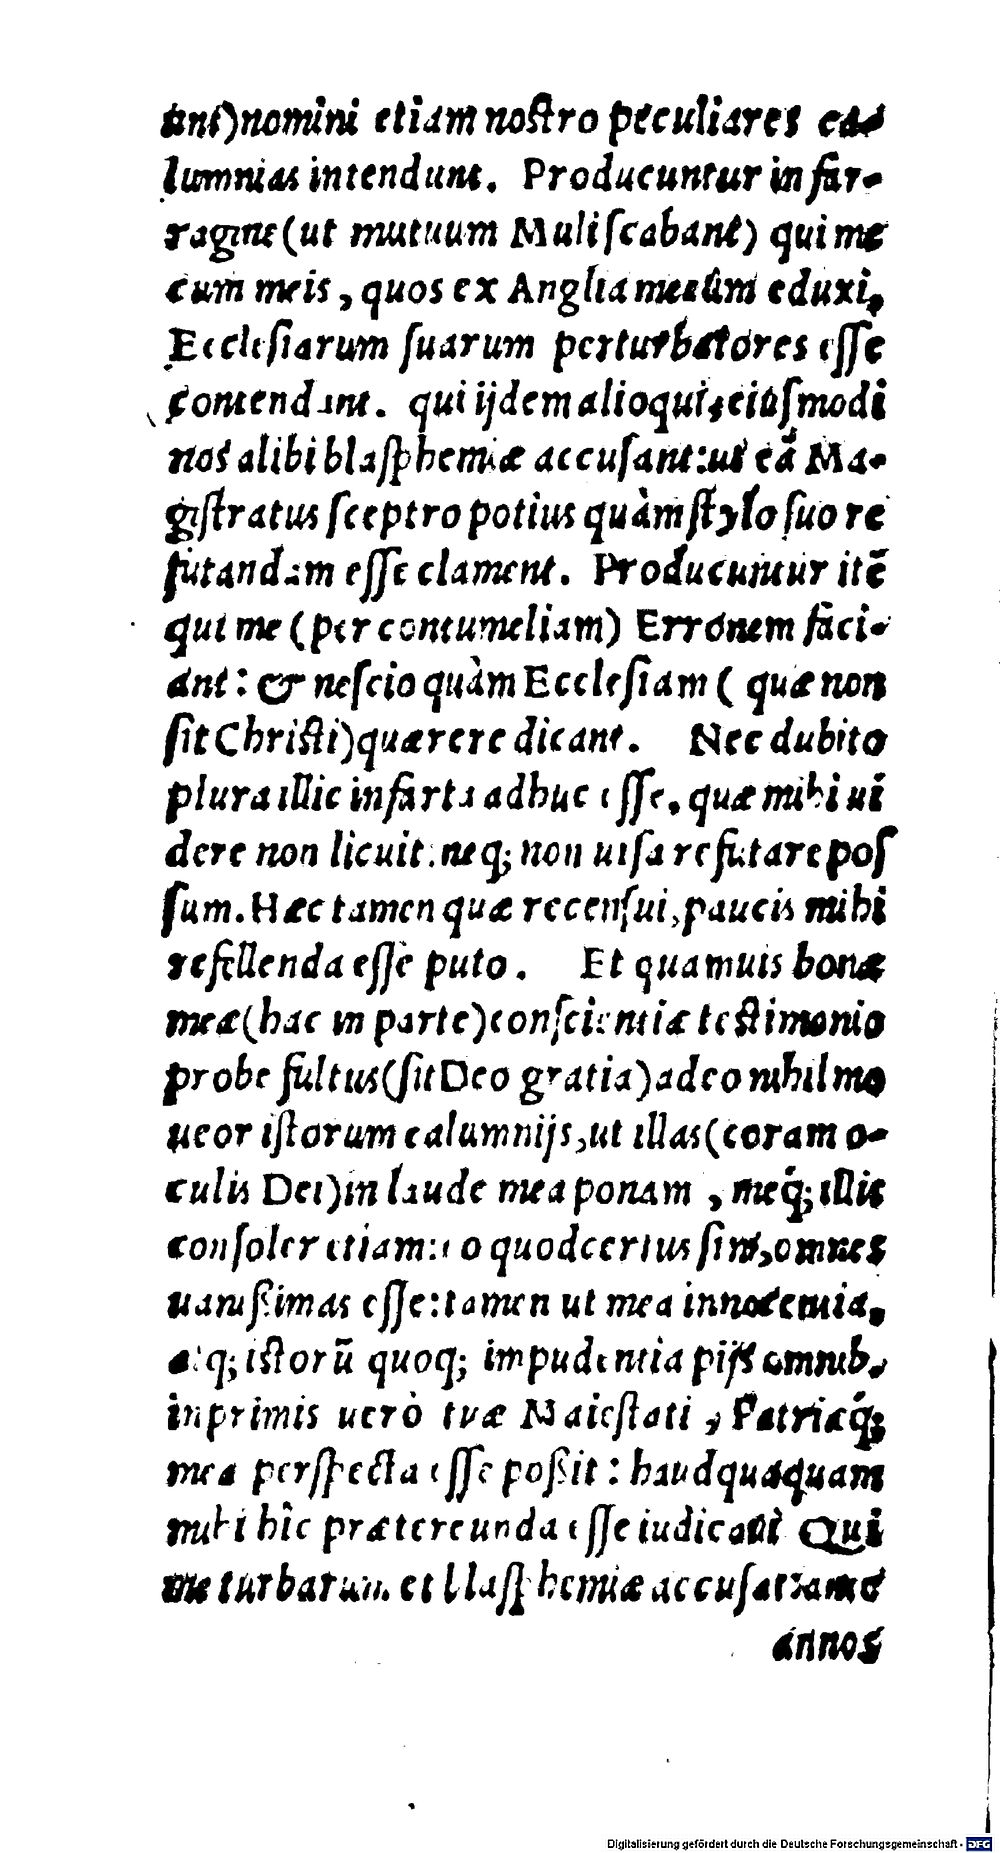 unt) nomini etiam noſtro peculiares ca-
lumnias intendunt. Producuntur in far-
ragine (ut mutuum Muli ſcabant) qui me
cum meis, quos ex Anglia mecum eduxi,
Eccleſiarum ſuarum perturbatores eſſe
contendant. qui ijdem alioqui, eiuſmodi
nos alibi blaſphemiæ accuſant: ut eã Ma-
giſtratus ſceptro potius quàm ſtylo ſuo re
futandam eſſe clament. Producuntur itẽ
qui me (per contumeliam) Erronem faci-
ant: & neſcio quàm Eccleſiam ( quæ non
ſit Chriſti) quærere dicant. Nec dubito
plura illic infarta adhuc eſſe, quæ mihi ui
dere non licuit: neq; non uiſa refutare poſ
ſum. Hæc tamen quæ recenſui, paucis mihi
refellenda eſſe puto. Et quamuis bonæ
meæ (hac in parte) conſcientiæ teſtimonio
probe fultus (ſit Deo gratia) adeo nihil mo
ueor iſtorum calumnijs, ut illas (coram o-
culis Dei) in laude mea ponam, meq́; illic
conſoler etiam: eo quod certus ſim, omnes
uaniſſimas eſſe: tamen ut mea innocentia,
atq; iſtorũ quoq; impudentia pijs omnib.
inprimis uerò tuæ Maieſtati, Patriæq́;
mea perſpecta eſſe poßit: haudquaquam
mihi hîc prætereunda eſſe iudicaui Qui
me turbarum et blaſphemiæ accuſat
annos
Digitalisierung gefördert durch die Deutsche Forschungsgemeinschaft - DFG